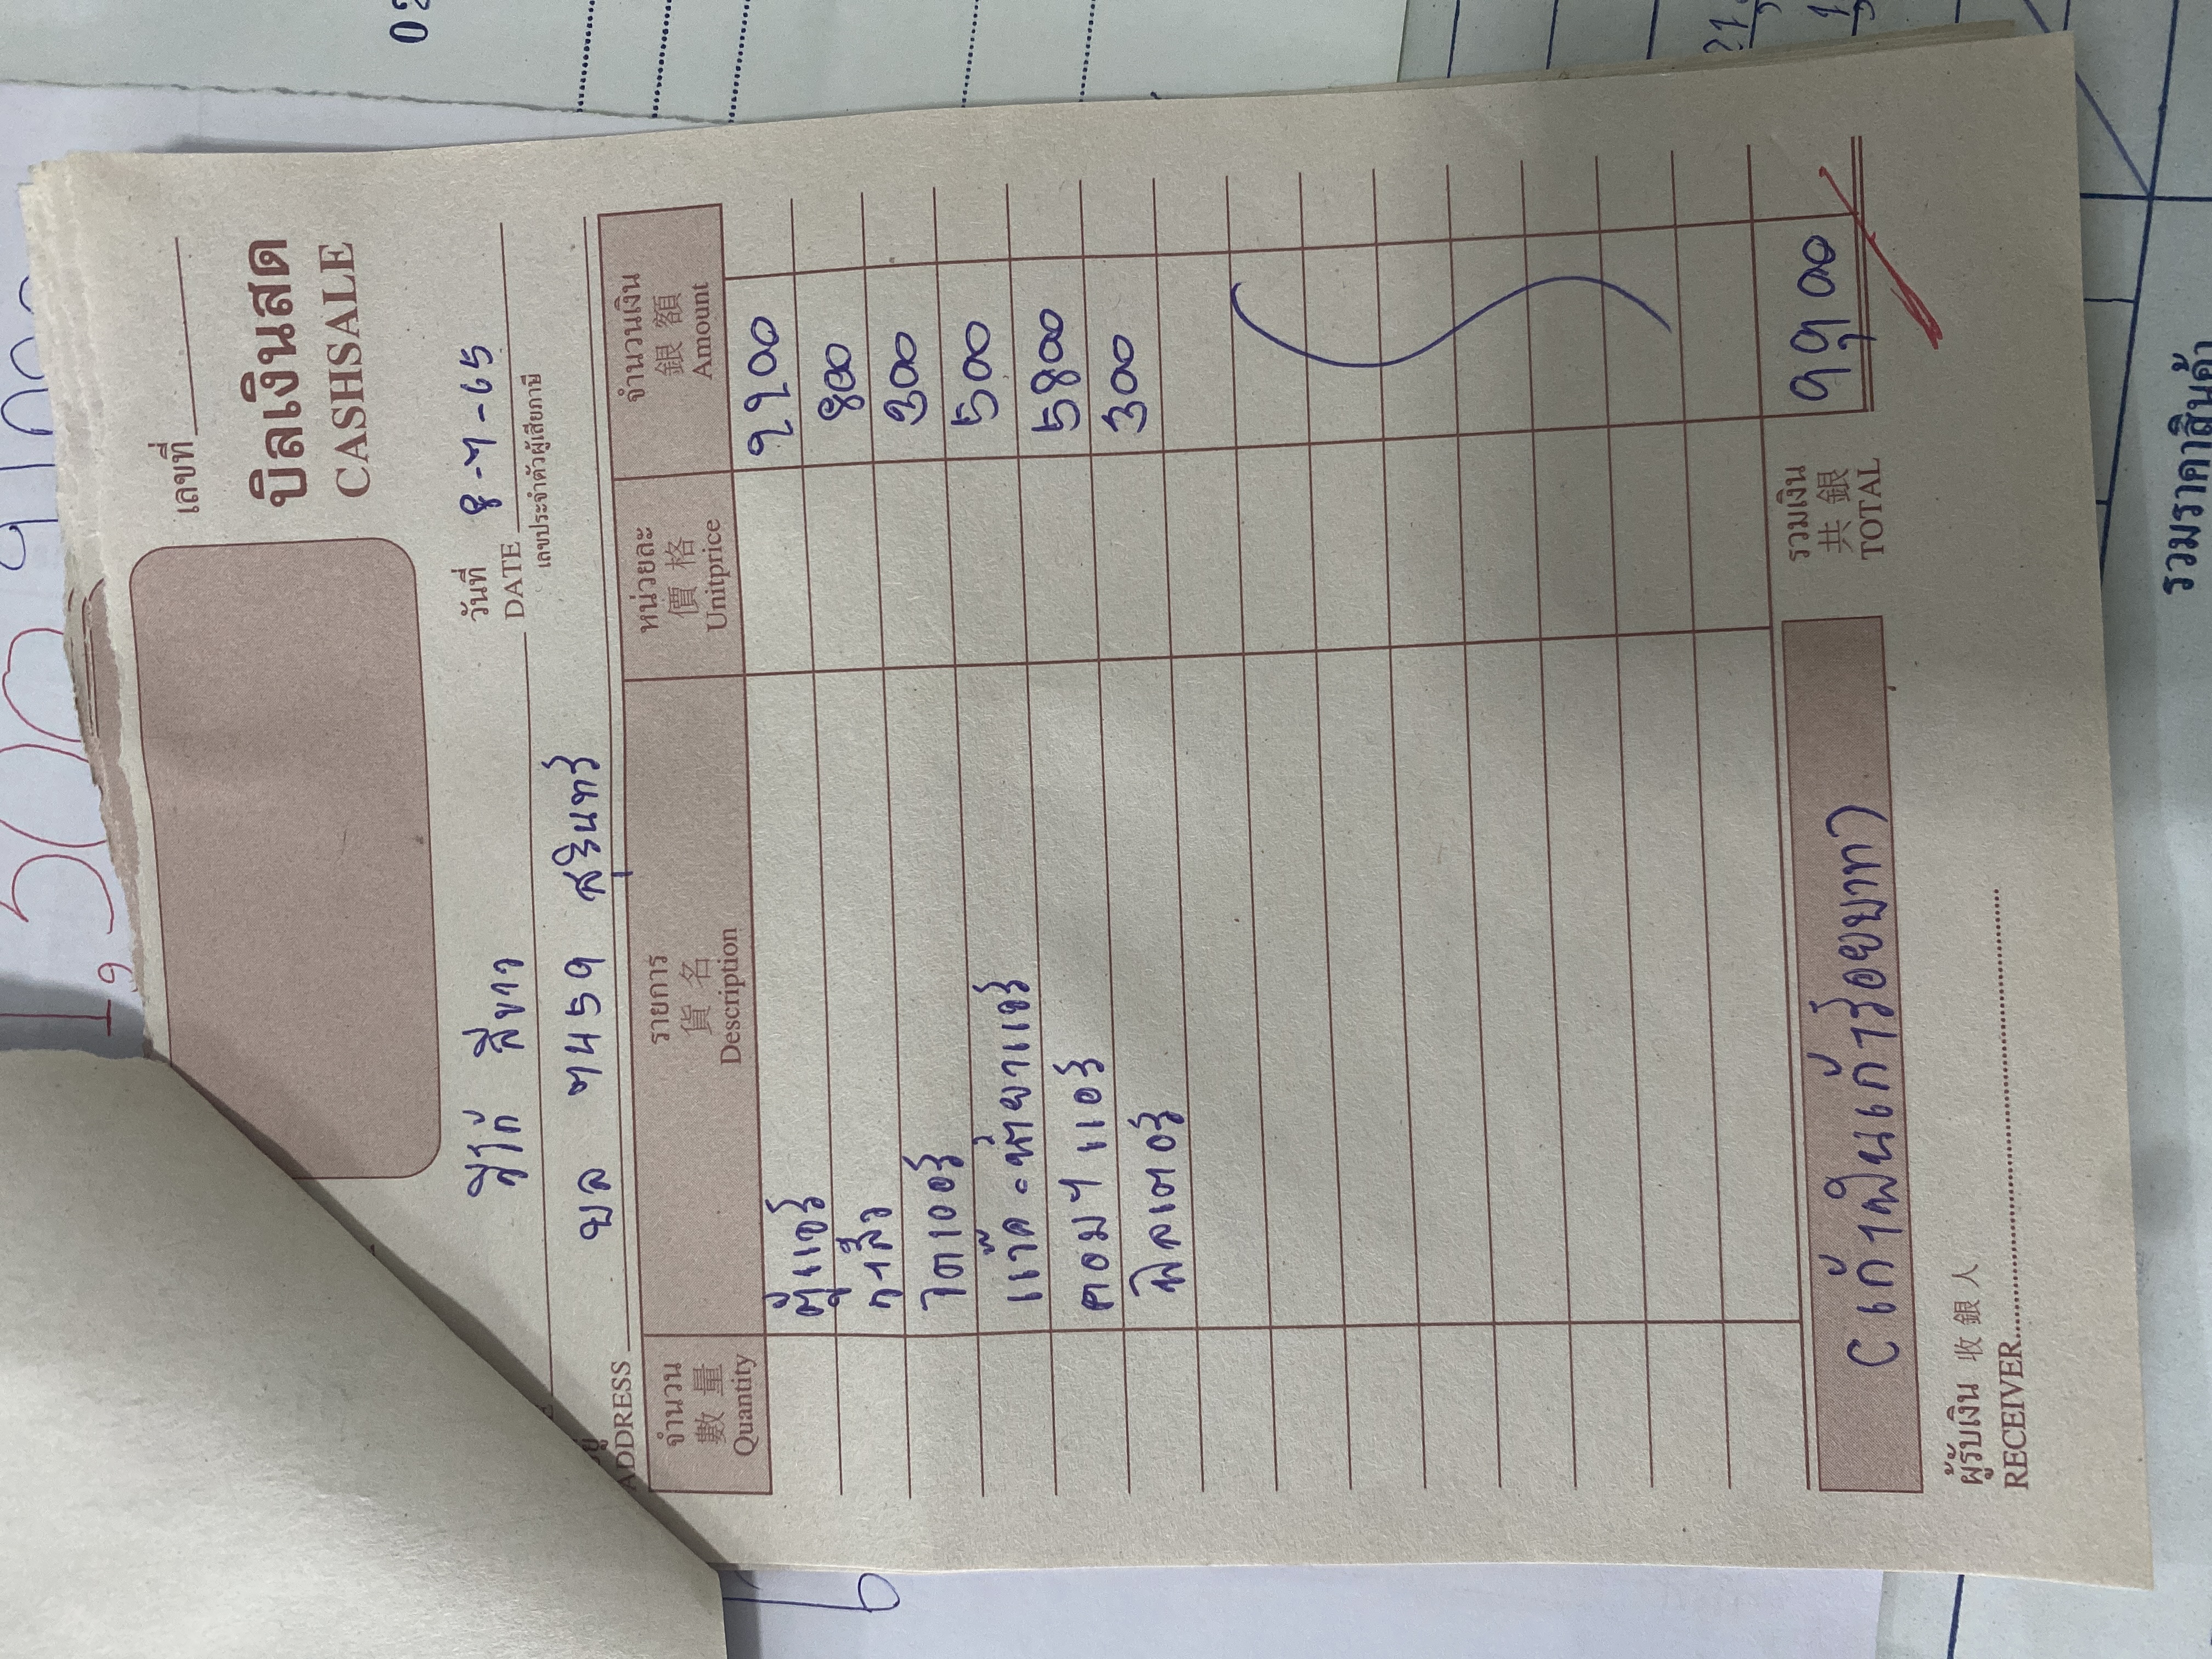 เลขที่
บิลเงินสด
CASHSALE
วันที่
DATE 8-7-65
เลขประจำตัวผู้เสียภาษี
วีโก้ สีขาว
ADDRESS บล 7459 สุรินทร์
จำนวน รายการ หน่วยละ จำนวนเงิน
數量 貨名 價格 銀額
Quantity Description Unitprice Amount
ตู้แอร์ 2200
วาล์ว 800
ไดเออร์ 300
แว๊ค-น้ำยาแอร์ 500
คอมฯ แอร์ 5800
ฟิลเตอร์ 300
(เก้าพันเก้าร้อยบาท) รวมเงิน 共銀 TOTAL 9900
ผู้รับเงิน 收銀人
RECEIVER
รวมราคาสินค้า